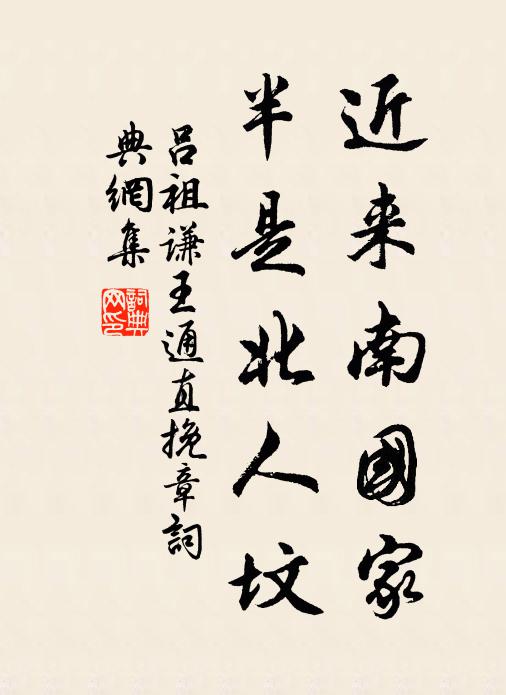 近来南國家
半是北人坟
吕祖谦王通直挽章詞
典網集
詞典
网印